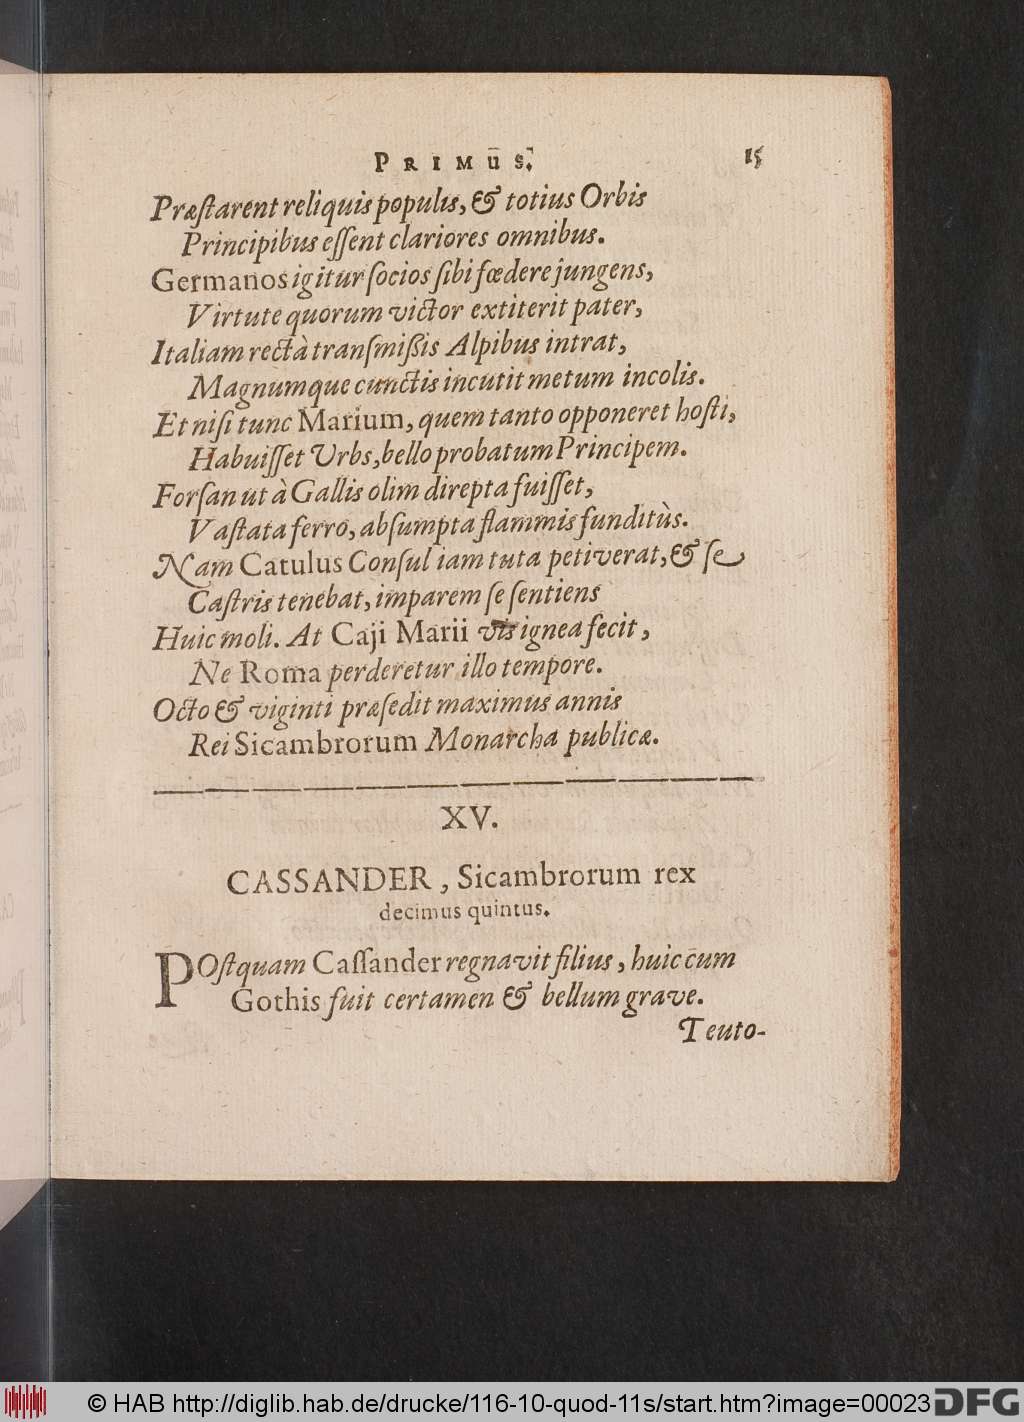 PRIMUS. 15
Præſtarent reliquis populis, & totius Orbis
Principibus eſſent clariores omnibus.
Germanos igitur ſocios ſibi fœdere jungens,
Virtute quorum victor extiterit pater,
Italiam rectà tranſmißis Alpibus intrat,
Magnumque cunctis incutit metum incolis.
Et niſi tunc Marium, quem tanto opponeret hoſti,
Habuiſſet Urbs, bello probatum Principem.
Forſan ut à Gallis olim direpta fuiſſet,
Vaſtata ferro, abſumpta flammis funditùs.
Nam Catulus Conſul iam tuta petiverat, & ſe
Caſtris tenebat, imparem ſe ſentiens
Huic moli. At Caji Marii vis ignea fecit,
Ne Roma perderetur illo tempore.
Octo & viginti præſedit maximus annis
Rei Sicambrorum Monarcha publicæ.
XV.
CASSANDER, Sicambrorum rex
decimus quintus.
POſtquam Caſſander regnavit filius, huic cum
Gothis fuit certamen & bellum grave.
Teuto-
© HAB http://diglib.hab.de/drucke/116-10-quod-11s/start.htm?image=00023 DFG